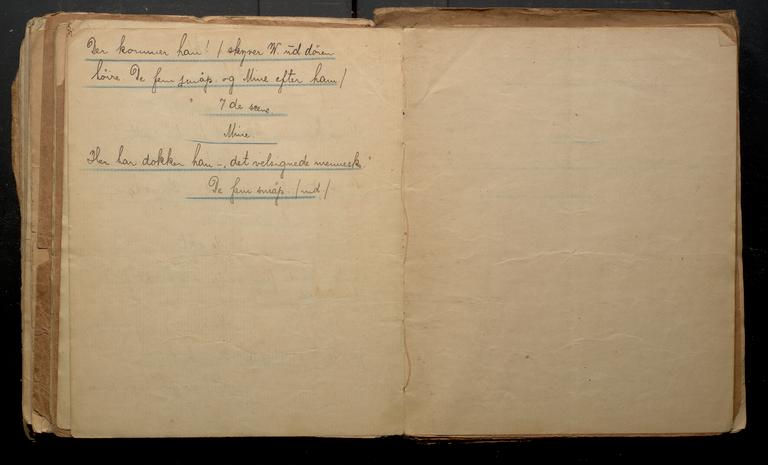 Der kommer han! / skyver W. ud døren
høire. De fem småp. og Mine efter ham /
7de scene.
Mine
Her har dokker han –, det velsignede mennesk.
De fem småp. / ind /